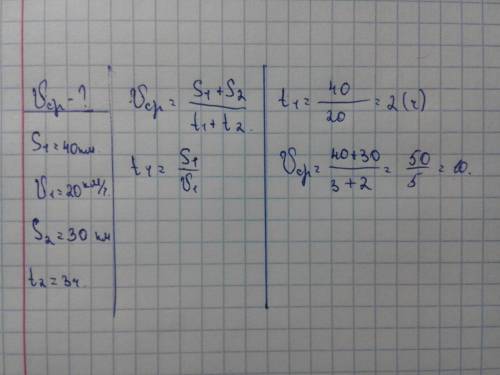 Vср - ?
S₁ = 40 км
V₁ = 20 км/ч
S₂ = 30 км
t₂ = 3ч.
Vср = (S₁ + S₂)/(t₁ + t₂.)
t₁ = S₁/V₁
t₁ = 40/20 = 2 (ч)
Vср = (40+30)/(3+2) = 50/5 = 10.